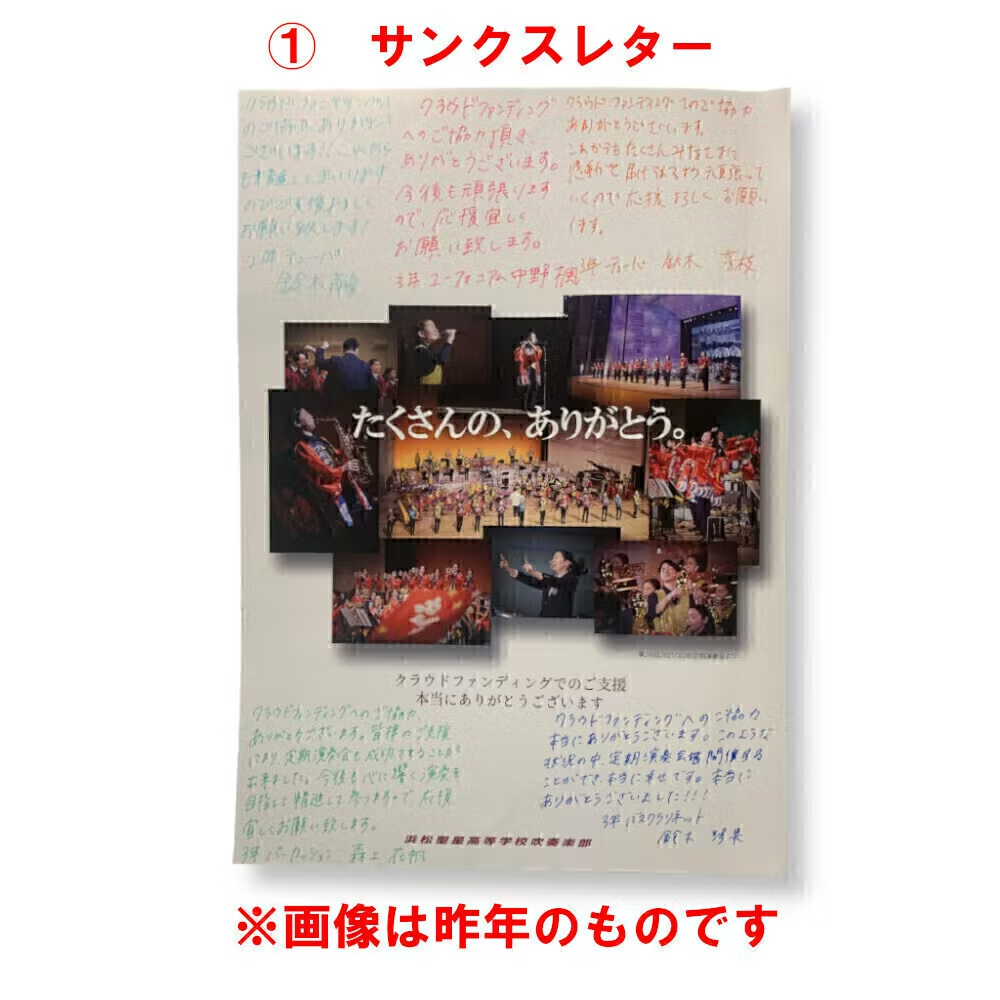 ① サンクスレター
クラウドファンディング
のご協力、ありがとう
ございます!!これから
も精進してまいります
のでご支援よろしく
お願い致します!
クラウドファンディング
へのご協力頂き、
ありがとうございます。
今後も頑張ります
ので、応援宜しく
お願い致します。
3年 ユーフォニアム 中野 楓
クラウドファンディングでのご協力
ありがとうございます。
これからもたくさんみなさまに
感動を届けられるよう頑張って
いくので応援よろしくお願い
します。
3年 鈴木
たくさんの、ありがとう。
クラウドファンディングでのご支援
本当にありがとうございます
クラウドファンディングへのご協力、
ありがとうございます。皆様のご支援
により、定期演奏会を成功させることが
出来ました。今後も心に響く演奏を
目指して精進して参りますので、応援
宜しくお願い致します。
3年 パーカッション 森上 花帆
クラウドファンディングへのご協力
本当にありがとうございます。このような
状況の中、定期演奏会を開催する
ことができ、本当に幸せです。本当に
ありがとうございました!!!
3年 バスクラリネット
鈴木
浜松聖星高等学校吹奏楽部
※画像は昨年のものです